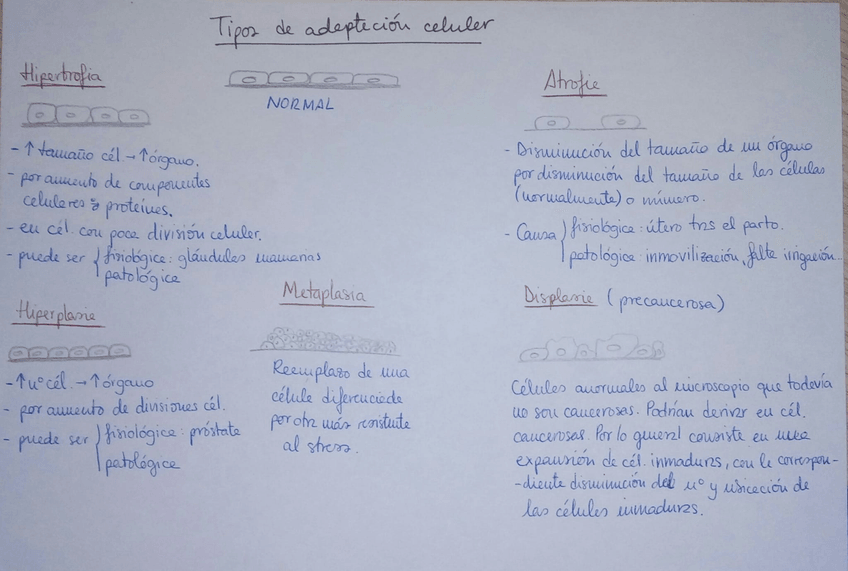 Tipos de adaptación celular
Hipertrofia
NORMAL
- ↑ tamaño cél → ↑ órgano.
- por aumento de componentes
celulares y proteínas.
- en cél. con poca división celular.
- puede ser { fisiológica: glándulas mamarias
patológica
Atrofia
- Disminución del tamaño de un órgano
por disminución del tamaño de las células
(normalmente) o número.
- Causa } fisiológica: útero tras el parto.
patológica: inmovilización, falta irrigación...
Hiperplasia
- ↑ nº cél. → ↑ órgano
- por aumento de divisiones cél.
- puede ser } fisiológica: próstata
patológica
Metaplasia
Reemplazo de una
célula diferenciada
por otra más resistente
al stress.
Displasia (precancerosa)
Células anormales al microscopio que todavía
no son cancerosas. Podrían derivar en cél.
cancerosas. Por lo general consiste en una
expansión de cél. inmaduras, con la correspon-
-diente disminución del nº y ubicación de
las células inmaduras.